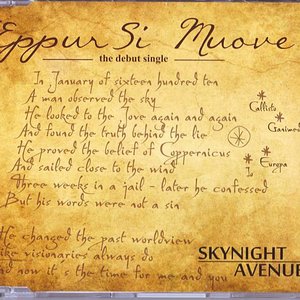 Eppur Si Muove
the debut single
In January of sixteen hundred ten
A man observed the sky
He looked to the Jove again and again
And found the truth behind the lie
He proved the belief of Coppernicus
And sailed close to the wind
Three weeks in a jail - later he confessed
But his words were not a sin
Callisto
Ganimed
Io
Europa
He changed the past worldview
like visionaries always do
And now it's the time for me and you
SKYNIGHT
AVENUE